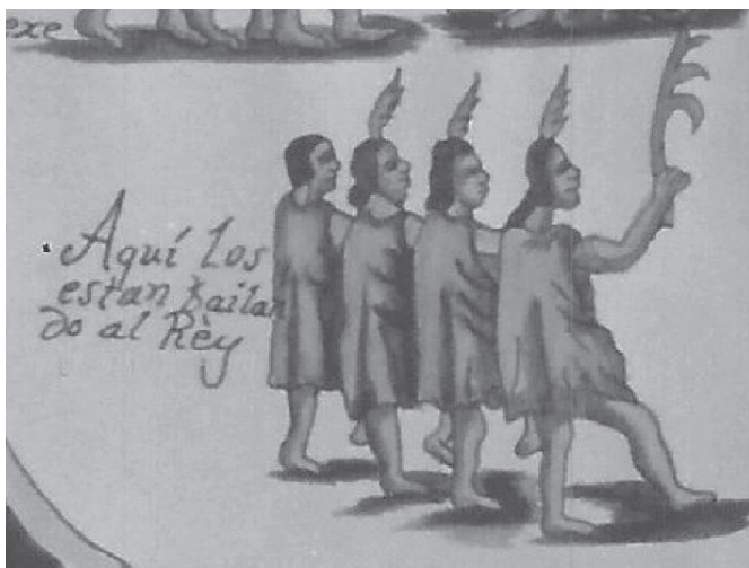 exe
Aquí Los
estan bailan
do al Rèy